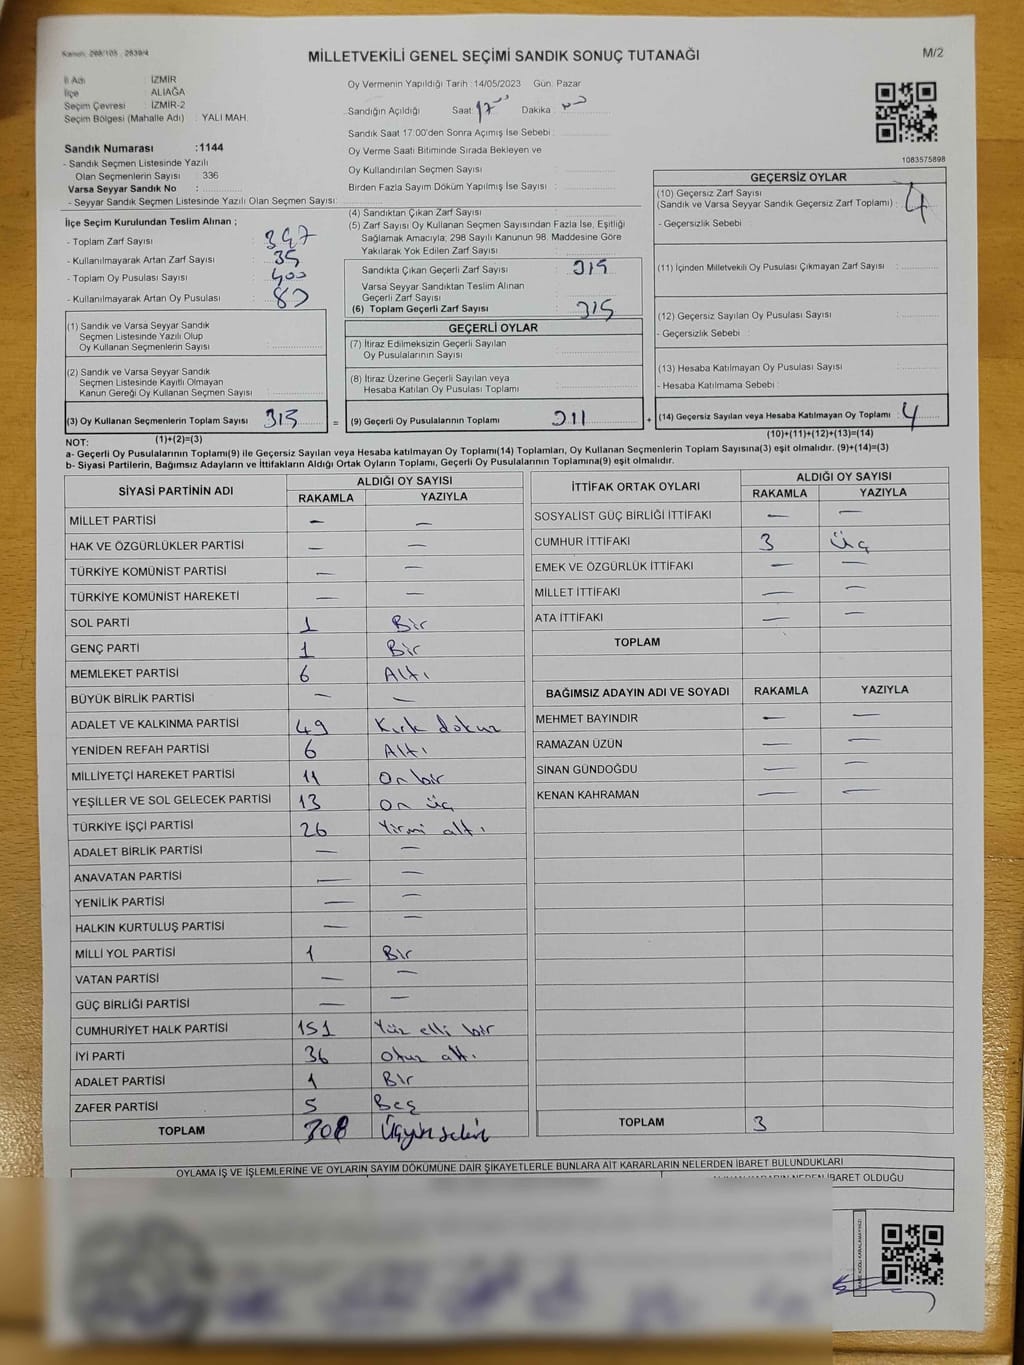 Kanun: 298/105 , 2839/4
MİLLETVEKİLİ GENEL SEÇİMİ SANDIK SONUÇ TUTANAĞI
M/2
İl Adı : İZMİR
İlçe : ALİAĞA
Seçim Çevresi : İZMİR-2
Seçim Bölgesi (Mahalle Adı) : YALI MAH.
Oy Vermenin Yapıldığı Tarih : 14/05/2023 Gün: Pazar
Sandığın Açıldığı Saat: 17 Dakika :
Sandık Saat 17:00'den Sonra Açımış İse Sebebi :
Oy Verme Saati Bitiminde Sırada Bekleyen ve
Oy Kullandırılan Seçmen Sayısı
Birden Fazla Sayım Döküm Yapılmış İse Sayısı :
1083575898
Sandık Numarası :1144
- Sandık Seçmen Listesinde Yazılı
Olan Seçmenlerin Sayısı : 336
Varsa Seyyar Sandık No :
- Seyyar Sandık Seçmen Listesinde Yazılı Olan Seçmen Sayısı:
İlçe Seçim Kurulundan Teslim Alınan ;
- Toplam Zarf Sayısı : 347
- Kullanılmayarak Artan Zarf Sayısı : 35
- Toplam Oy Pusulası Sayısı : 400
- Kullanılmayarak Artan Oy Pusulası :
(1) Sandık ve Varsa Seyyar Sandık
Seçmen Listesinde Yazılı Olup
Oy Kullanan Seçmenlerin Sayısı :
(2) Sandık ve Varsa Seyyar Sandık
Seçmen Listesinde Kayıtlı Olmayan
Kanun Gereği Oy Kullanan Seçmen Sayısı :
(3) Oy Kullanan Seçmenlerin Toplam Sayısı 315
(1)+(2)=(3)
(4) Sandıktan Çıkan Zarf Sayısı :
(5) Zarf Sayısı Oy Kullanan Seçmen Sayısından Fazla İse, Eşitliği
Sağlamak Amacıyla; 298 Sayılı Kanunun 98. Maddesine Göre
Yakılarak Yok Edilen Zarf Sayısı :
Sandıkta Çıkan Geçerli Zarf Sayısı : 315
Varsa Seyyar Sandıktan Teslim Alınan
Geçerli Zarf Sayısı :
(6) Toplam Geçerli Zarf Sayısı : 315
GEÇERLİ OYLAR
(7) İtiraz Edilmeksizin Geçerli Sayılan
Oy Pusulalarının Sayısı :
(8) İtiraz Üzerine Geçerli Sayılan veya
Hesaba Katılan Oy Pusulası Toplamı :
= (9) Geçerli Oy Pusulalarının Toplamı 311 +
GEÇERSİZ OYLAR
(10) Geçersiz Zarf Sayısı
(Sandık ve Varsa Seyyar Sandık Geçersiz Zarf Toplamı) : 4
- Geçersizlik Sebebi :
(11) İçinden Milletvekili Oy Pusulası Çıkmayan Zarf Sayısı :
(12) Geçersiz Sayılan Oy Pusulası Sayısı :
- Geçersizlik Sebebi :
(13) Hesaba Katılmayan Oy Pusulası Sayısı :
- Hesaba Katılmama Sebebi :
(14) Geçersiz Sayılan veya Hesaba Katılmayan Oy Toplamı : 4
(10)+(11)+(12)+(13)=(14)
NOT:
a- Geçerli Oy Pusulalarının Toplamı(9) ile Geçersiz Sayılan veya Hesaba katılmayan Oy Toplamı(14) Toplamları, Oy Kullanan Seçmenlerin Toplam Sayısına(3) eşit olmalıdır. (9)+(14)=(3)
b- Siyasi Partilerin, Bağımsız Adayların ve İttifakların Aldığı Ortak Oyların Toplamı, Geçerli Oy Pusulalarının Toplamına(9) eşit olmalıdır.
SİYASİ PARTİNİN ADI ALDIĞI OY SAYISI
RAKAMLA YAZIYLA
MİLLET PARTİSİ — —
HAK VE ÖZGÜRLÜKLER PARTİSİ — —
TÜRKİYE KOMÜNİST PARTİSİ — —
TÜRKİYE KOMÜNİST HAREKETİ — —
SOL PARTİ 1 Bir
GENÇ PARTİ 1 Bir
MEMLEKET PARTİSİ 6 Altı
BÜYÜK BİRLİK PARTİSİ — —
ADALET VE KALKINMA PARTİSİ 49 Kırk dokuz
YENİDEN REFAH PARTİSİ 6 Altı
MİLLİYETÇİ HAREKET PARTİSİ 11 On bir
YEŞİLLER VE SOL GELECEK PARTİSİ 13 On üç
TÜRKİYE İŞÇİ PARTİSİ 26 Yirmi altı
ADALET BİRLİK PARTİSİ — —
ANAVATAN PARTİSİ — —
YENİLİK PARTİSİ — —
HALKIN KURTULUŞ PARTİSİ — —
MİLLİ YOL PARTİSİ 1 Bir
VATAN PARTİSİ — —
GÜÇ BİRLİĞİ PARTİSİ — —
CUMHURİYET HALK PARTİSİ 151 Yüz elli bir
İYİ PARTİ 36 Otuz altı
ADALET PARTİSİ 1 Bir
ZAFER PARTİSİ 5 Beş
TOPLAM 308 Üçyüz sekiz
İTTİFAK ORTAK OYLARI ALDIĞI OY SAYISI
RAKAMLA YAZIYLA
SOSYALİST GÜÇ BİRLİĞİ İTTİFAKI — —
CUMHUR İTTİFAKI 3 Üç
EMEK VE ÖZGÜRLÜK İTTİFAKI — —
MİLLET İTTİFAKI — —
ATA İTTİFAKI — —
TOPLAM
BAĞIMSIZ ADAYIN ADI VE SOYADI RAKAMLA YAZIYLA
MEHMET BAYINDIR — —
RAMAZAN ÜZÜN — —
SİNAN GÜNDOĞDU — —
KENAN KAHRAMAN — —
TOPLAM 3
OYLAMA İŞ VE İŞLEMLERİNE VE OYLARIN SAYIM DÖKÜMÜNE DAİR ŞİKAYETLERLE BUNLARA AİT KARARLARIN NELERDEN İBARET BULUNDUKLARI
İBARET OLDUĞU